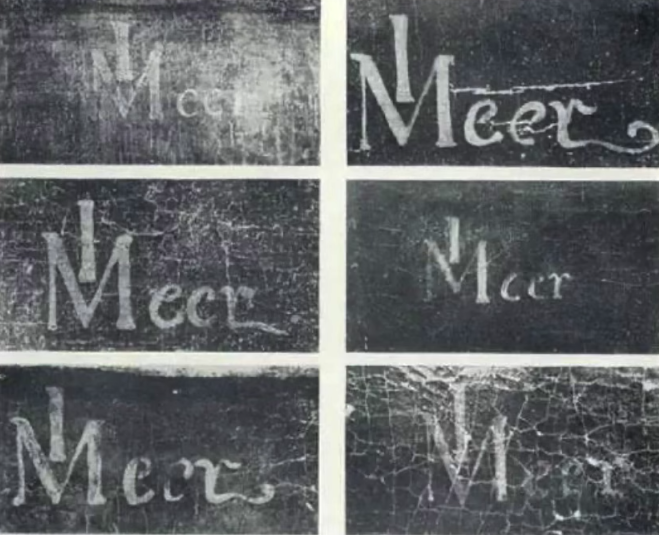 IMeer
IMeer
IMeer
IMeer
IMeer
IMeer